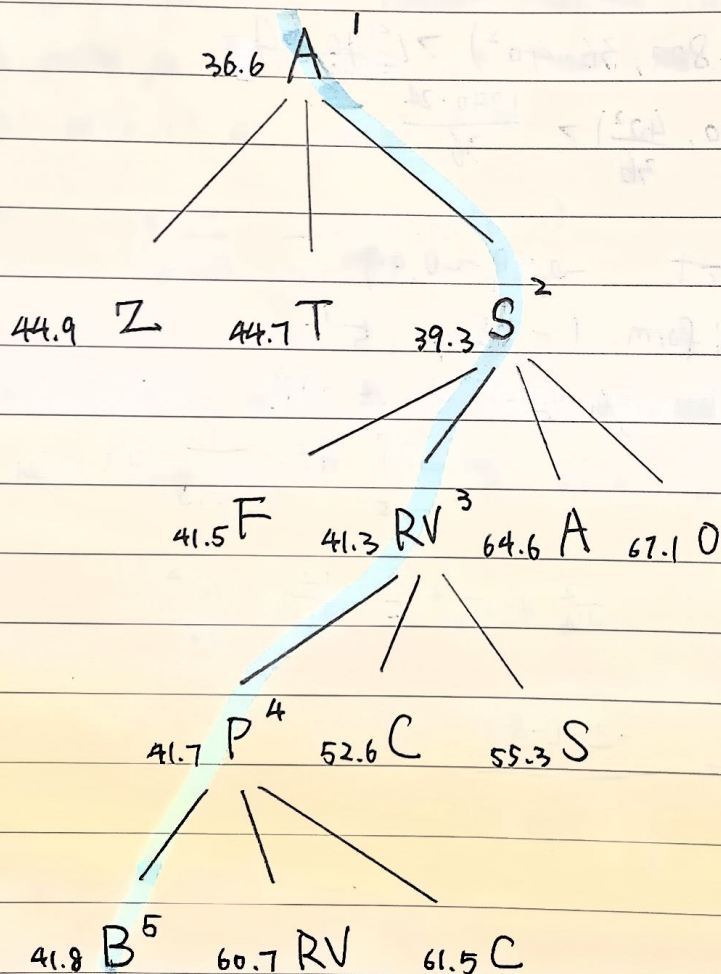 36.6 A 1
44.9 Z 44.7 T 39.3 S 2
41.5 F 41.3 RV 3 64.6 A 67.1 O
41.7 P 4 52.6 C 55.3 S
41.8 B 5 60.7 RV 61.5 C